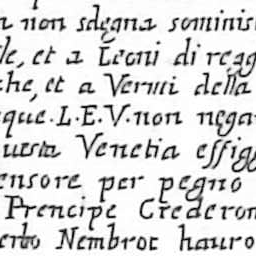 non sdegna sominis
le, et a Leoni di regg
che, et a Vermi della
que. L.E.V. non negar
uesta Venetia effigg
ensore per pegno
Prencipe Crederon
erto Nembrot hauro